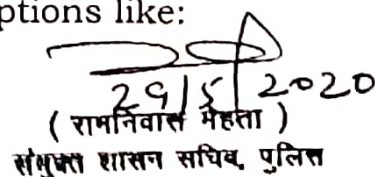 ptions like:
29/5/2020
( रामनिवास मेहता )
संयुक्त शासन सचिव, पुलिस